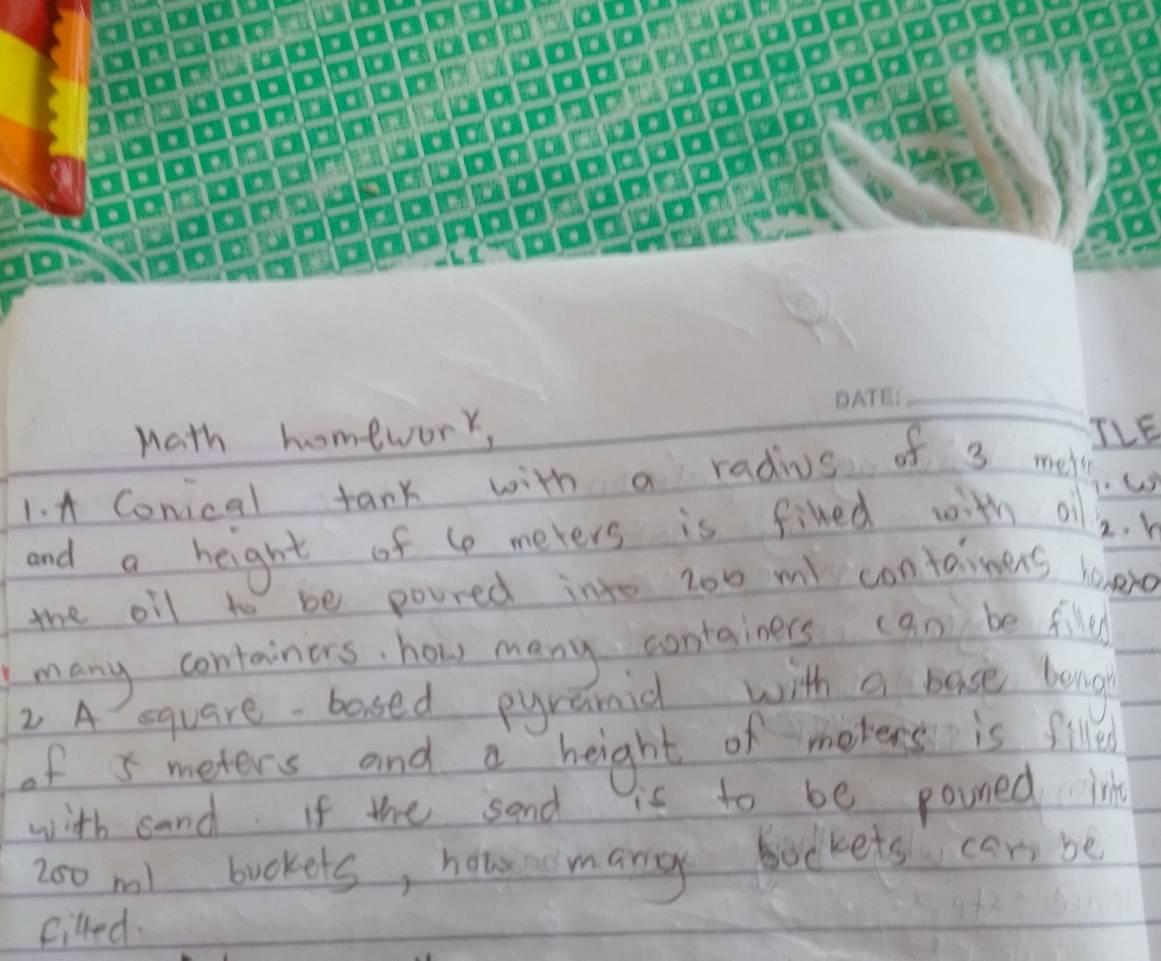 DATE:
Math homework,
1. A Conical tank with a radius of 3 meter
and a height of 6 meters is filled with oil.
the oil to be poured into 200 ml containers
many containers. how many containers can be filled
2 A square-based pyramid with a base
of 5 meters and a height of meters is filled
with sand. If the sand is to be pouned into
200 ml buckets, how many buckets can be
filled.
TLE
1. w
2. h